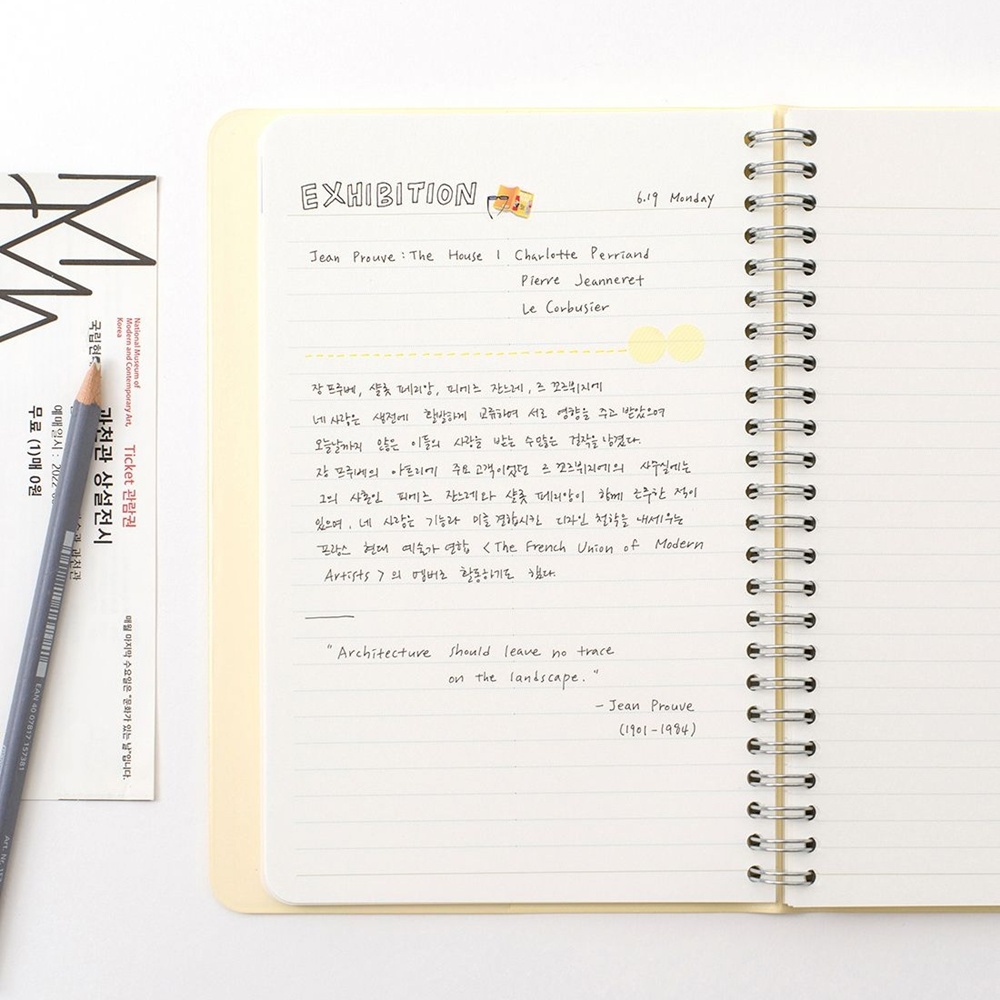 EXHIBITION
6.19 Monday
Jean Prouve : The House | Charlotte Perriand
Pierre Jeanneret
Le Corbusier
장 프루베, 샬롯 페리앙, 피에르 잔느레, 르 꼬르뷔지에
네 사람은 생전에 활발하게 교류하며 서로 영향을 주고 받았으며
오늘날까지 않은 이들의 사랑을 받는 수많은 걸작을 남겼다.
장 프루베의 아뜰리에 주요 고객이었던 르 꼬르뷔지에의 사무실에는
그의 사촌인 피에르 잔느레와 샬롯 페리앙이 함께 근무한 적이
있으며, 네 사람은 기능과 미를 결합시킨 디자인 철학을 내세우는
프랑스 현대 예술가 연합 <The French Union of Modern
Artists> 의 멤버로 활동하기도 했다.
"Architecture should leave no trace
on the landscape."
- Jean Prouve
(1901-1984)
National Museum of
Modern and Contemporary Art,
Korea
국립현
Ticket 관람권
과천관 상설전시
예매일시 : 2022
무료 (1)매 0원
과천관
매월 마지막 수요일은 "문화가 있는 날"입니다.
EAN 40 07817 157381
Art. Nr.